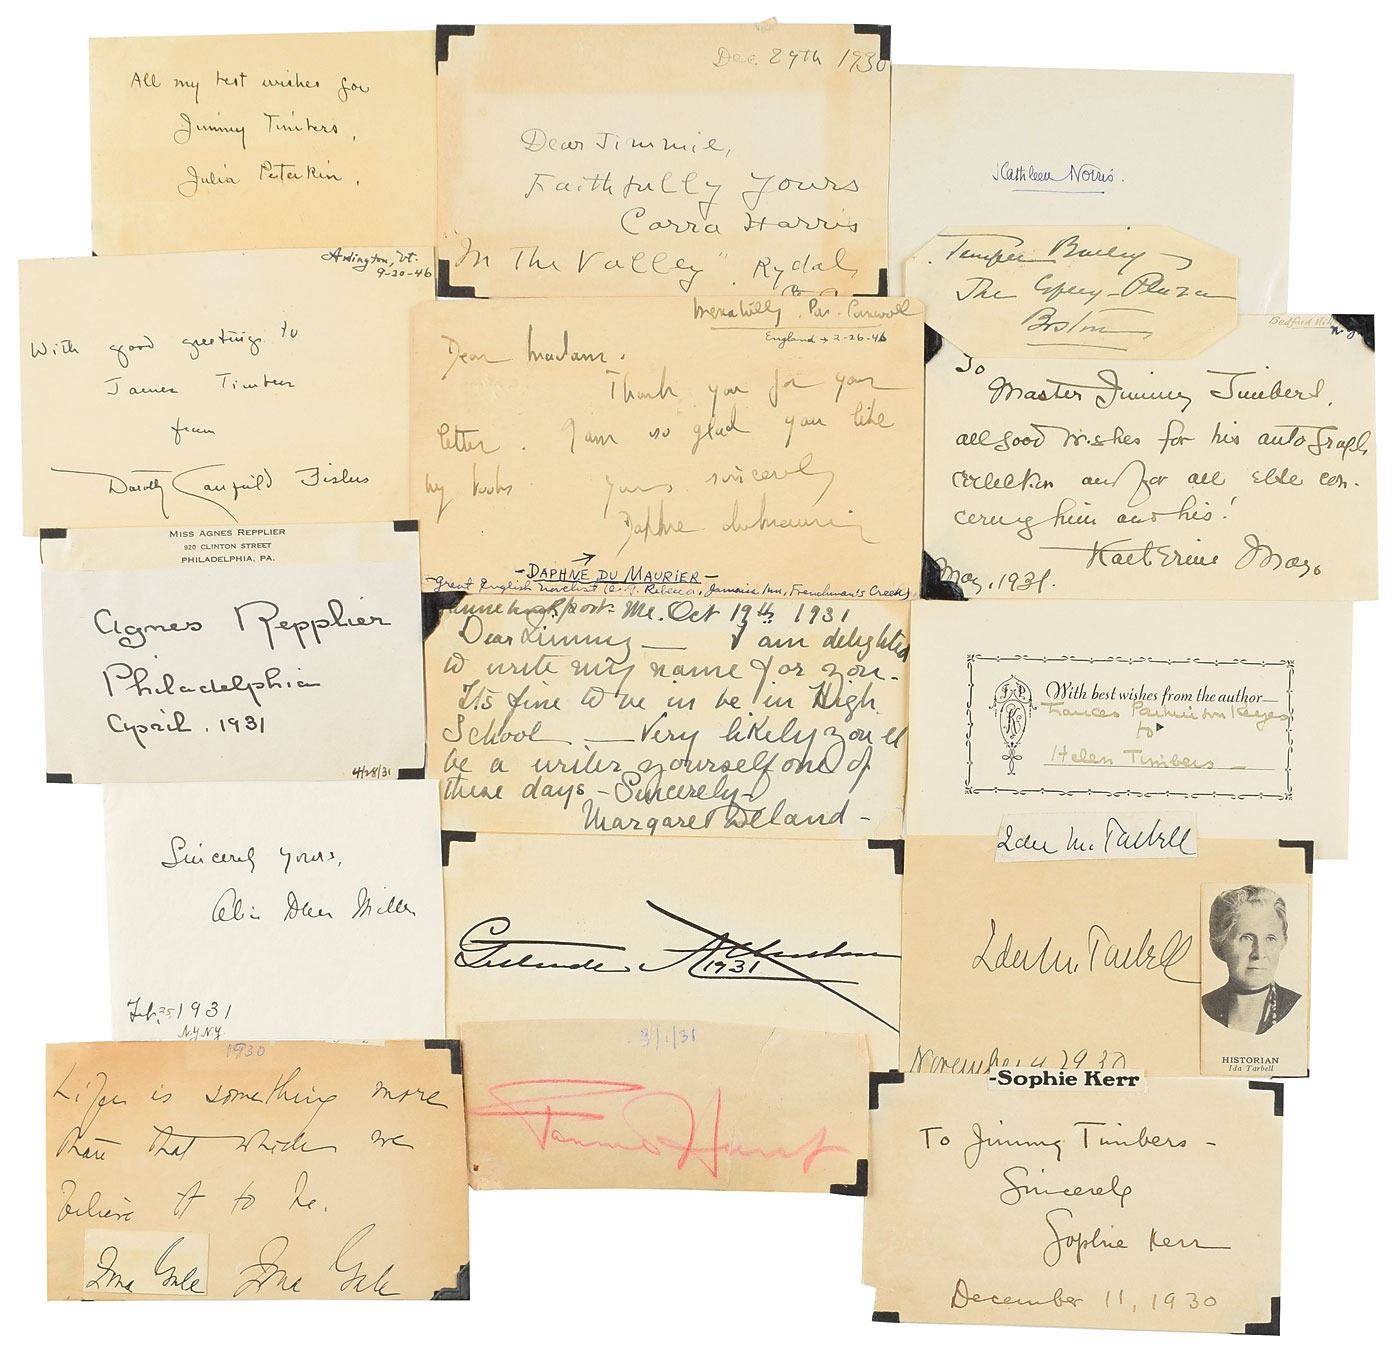 All my best wishes for
Jimmy Timbers,
Julia Peterkin.
Dec. 29th 1930
Dear Jimmie,
Faithfully Yours
Corra Harris
"In The Valley" Rydal,
Kathleen Norris.
Temple Bailey
The Copley-Plaza
Boston
Arlington, Vt.
9-20-46
With good greetings to
James Timbers
from
Dorothy Canfield Fisher
Menabilly. Par. Cornwall
England → 2-26-46
Dear Madam.
Thank you for your
letter. I am so glad you like
my books.
Yours sincerely
Daphne du Maurier
-DAPHNE DU MAURIER-
-Great English novelist (e.g. Rebecca, Jamaica Inn, Frenchman's Creek)
Bedford Hills
N.Y.
To
Master Jimmy Timbers,
all good wishes for his autograph
collection and for all else con-
cerning him and his!
Katherine Mayo
May, 1931.
MISS AGNES REPPLIER
920 CLINTON STREET
PHILADELPHIA, PA.
Agnes Repplier
Philadelphia
April. 1931
4/28/31
Kennebunkport- Me. Oct 19th 1931
Dear Jimmy — I am delighted
to write my name for you-
Its fine to be in High
School — Very likely you'll
be a writer yourself one of
these days - Sincerely-
Margaret Deland -
F P K
With best wishes from the author—
Frances Parkinson Keyes
to
Helen Timbers —
Sincerely yours,
Alice Duer Miller
Feb. 25, 1931
N.Y. N.Y.
Gertrude Atherton
1931
Ida M. Tarbell
Ida M. Tarbell
November 4 1930
HISTORIAN
Ida Tarbell
1930
Life is something more
than that which we
believe it to be.
Zona Gale Zona Gale
3/1/31
Fannie Hurst
-Sophie Kerr
To Jimmy Timbers -
Sincerely
Sophie Kerr
December 11, 1930